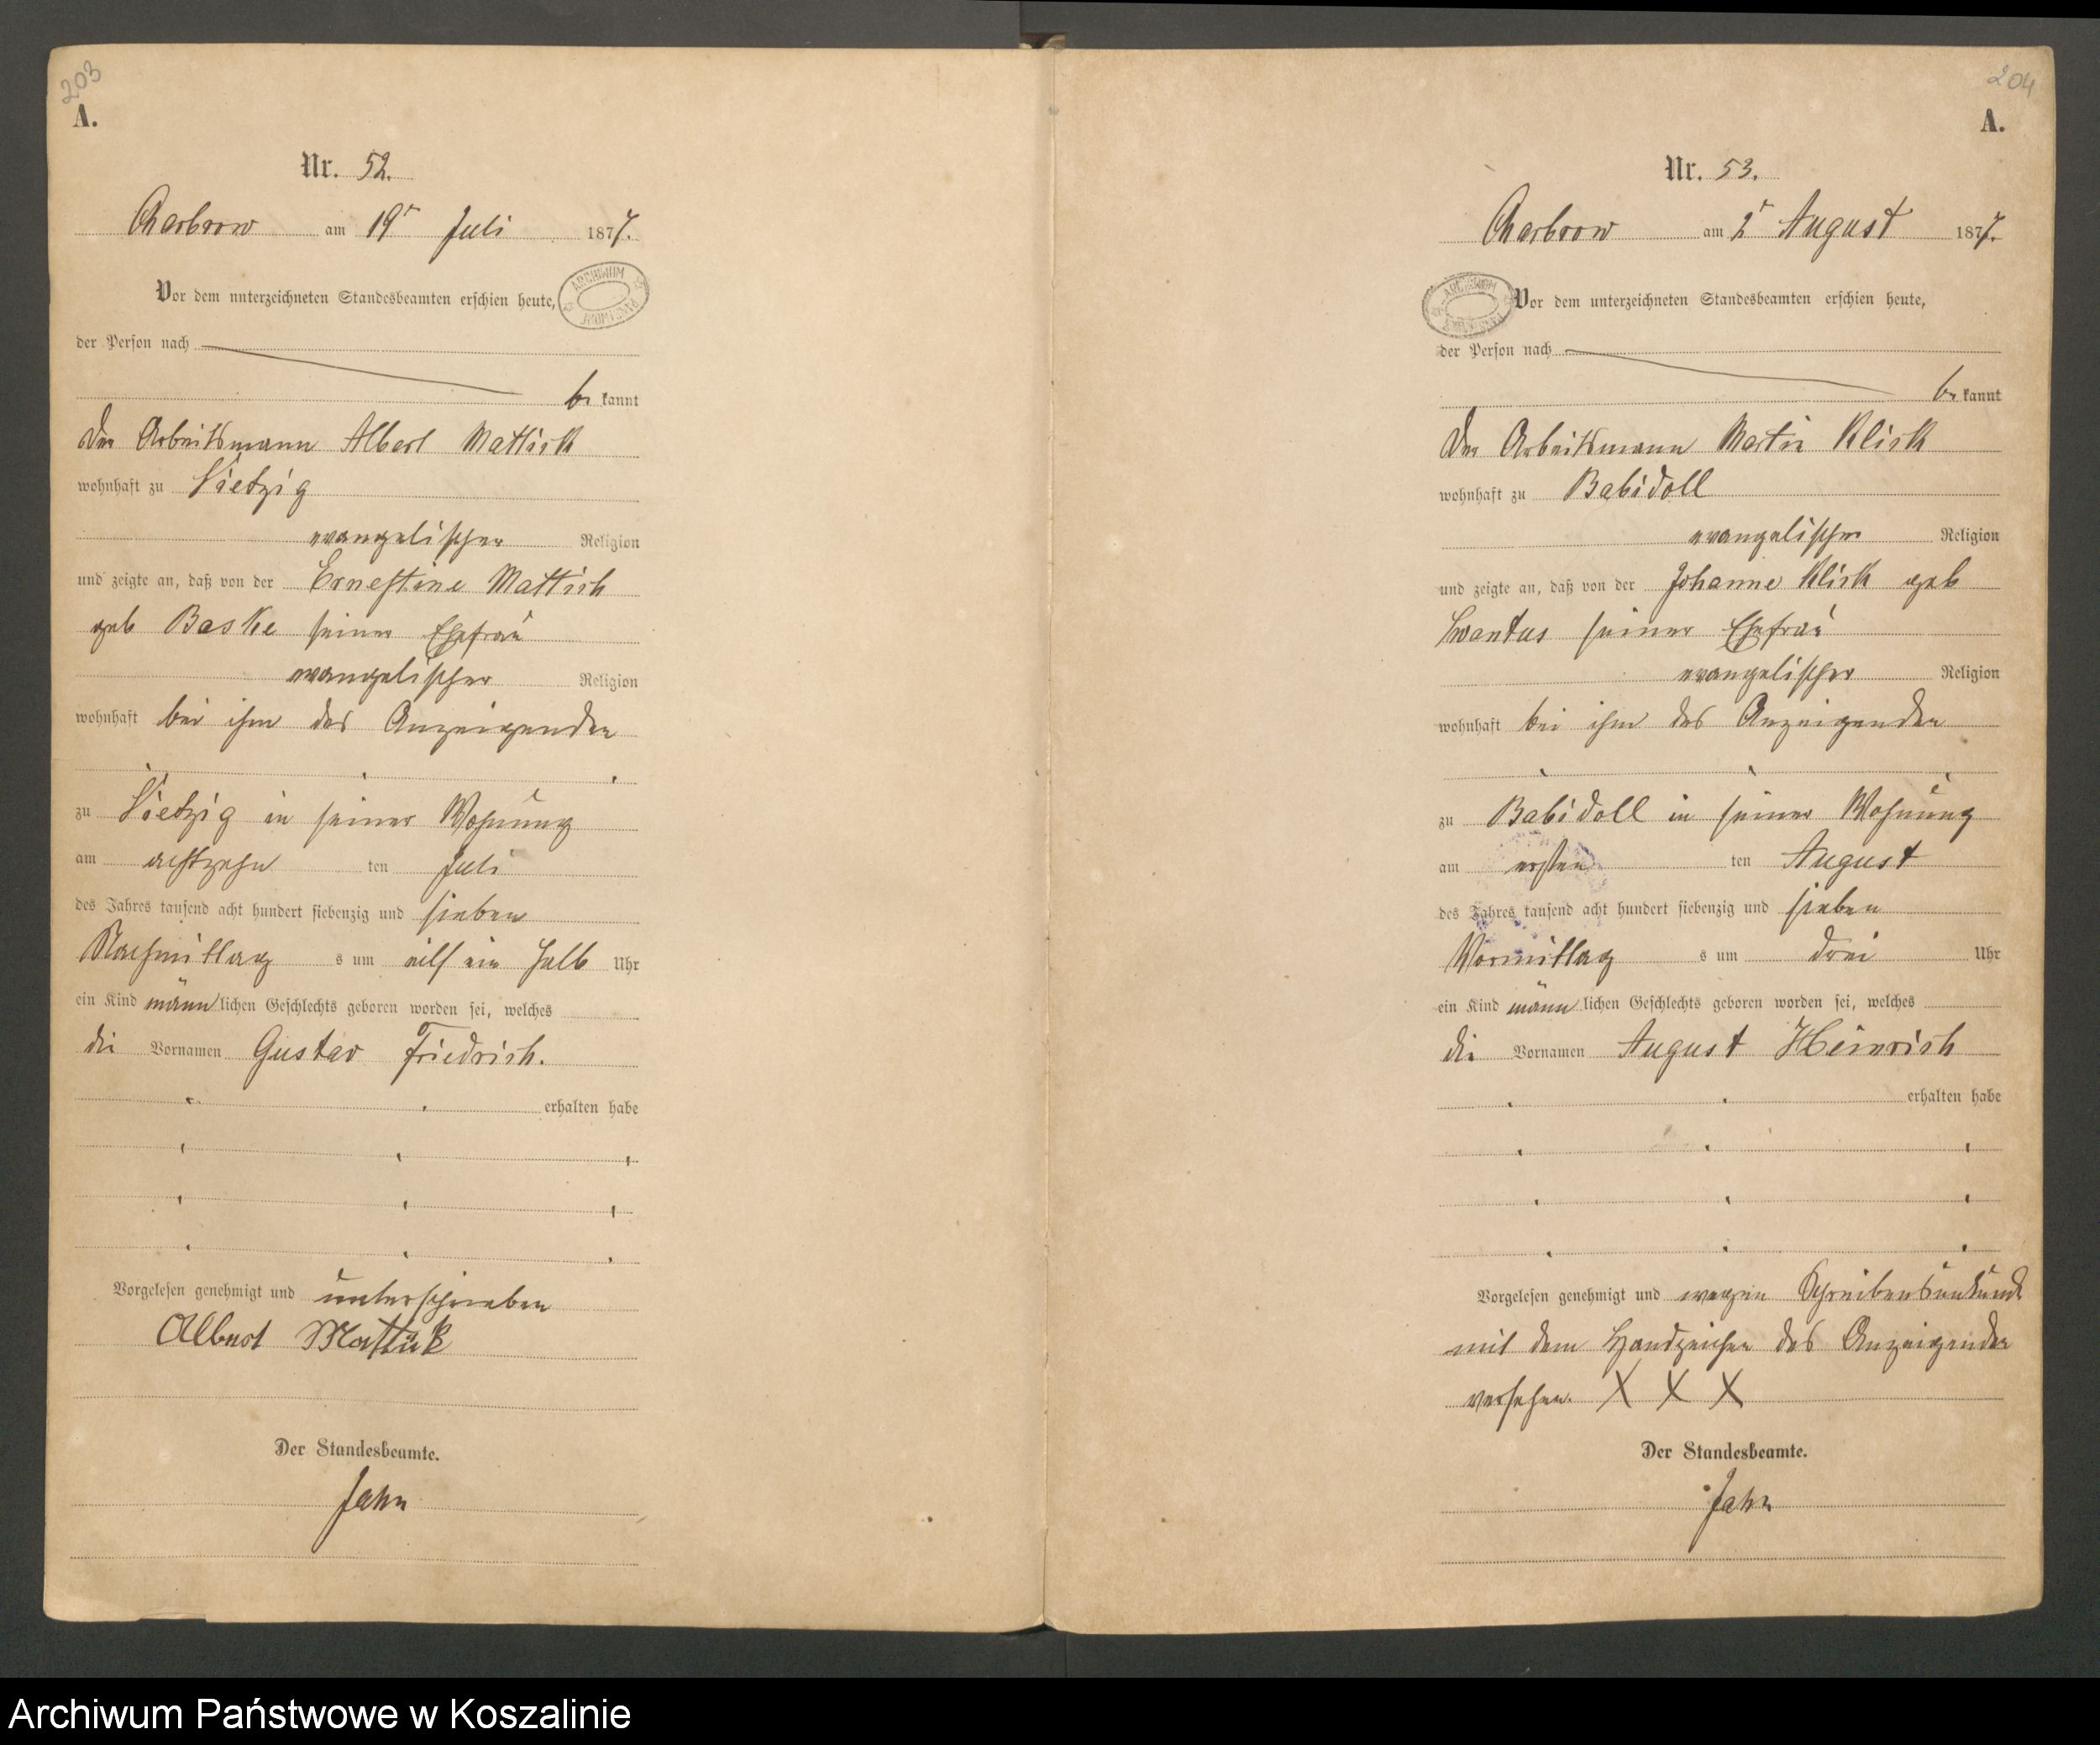 203
A.
Nr. 52.
Charbrow am 19t Juli 1877.
Vor dem unterzeichneten Standesbeamten erschien heute,
ARCHIWUM PAŃSTWOWE
der Person nach
be kannt
Der Arbeitsmann Albert Mattick
wohnhaft zu Vietzig
evangelischer Religion
und zeigte an, daß von der Ernestine Mattick
geb Baske seiner Ehefrau
evangelischer Religion
wohnhaft bei ihm des Anzeigenden
zu Vietzig in seiner Wohnung
am achtzehn ten Juli
des Jahres tausend acht hundert siebenzig und sieben
Nachmittag s um eilf ein halb Uhr
ein Kind männ lichen Geschlechts geboren worden sei, welches
die Vornamen Gustav Friedrich.
erhalten habe
Vorgelesen genehmigt und unterschrieben
Albert Mattick
Der Standesbeamte.
Jahn
204
A.
Nr. 53.
Charbrow am 2t August 1877.
Vor dem unterzeichneten Standesbeamten erschien heute,
ARCHIWUM PAŃSTWOWE
der Person nach
be kannt
Der Arbeitsmann Martin Klick
wohnhaft zu Babidoll
evangelischer Religion
und zeigte an, daß von der Johanne Klick geb
Swantus seiner Ehefrau
evangelischer Religion
wohnhaft bei ihm des Anzeigenden
zu Babidoll in seiner Wohnung
am ersten ten August
des Jahres tausend acht hundert siebenzig und sieben
Vormittag s um drei Uhr
ein Kind männ lichen Geschlechts geboren worden sei, welches
die Vornamen August Heinrich
erhalten habe
Vorgelesen genehmigt und wegen Schreibensunkunde
mit dem Handzeichen des Anzeigenden
versehen. X X X
Der Standesbeamte.
Jahn
Archiwum Państwowe w Koszalinie